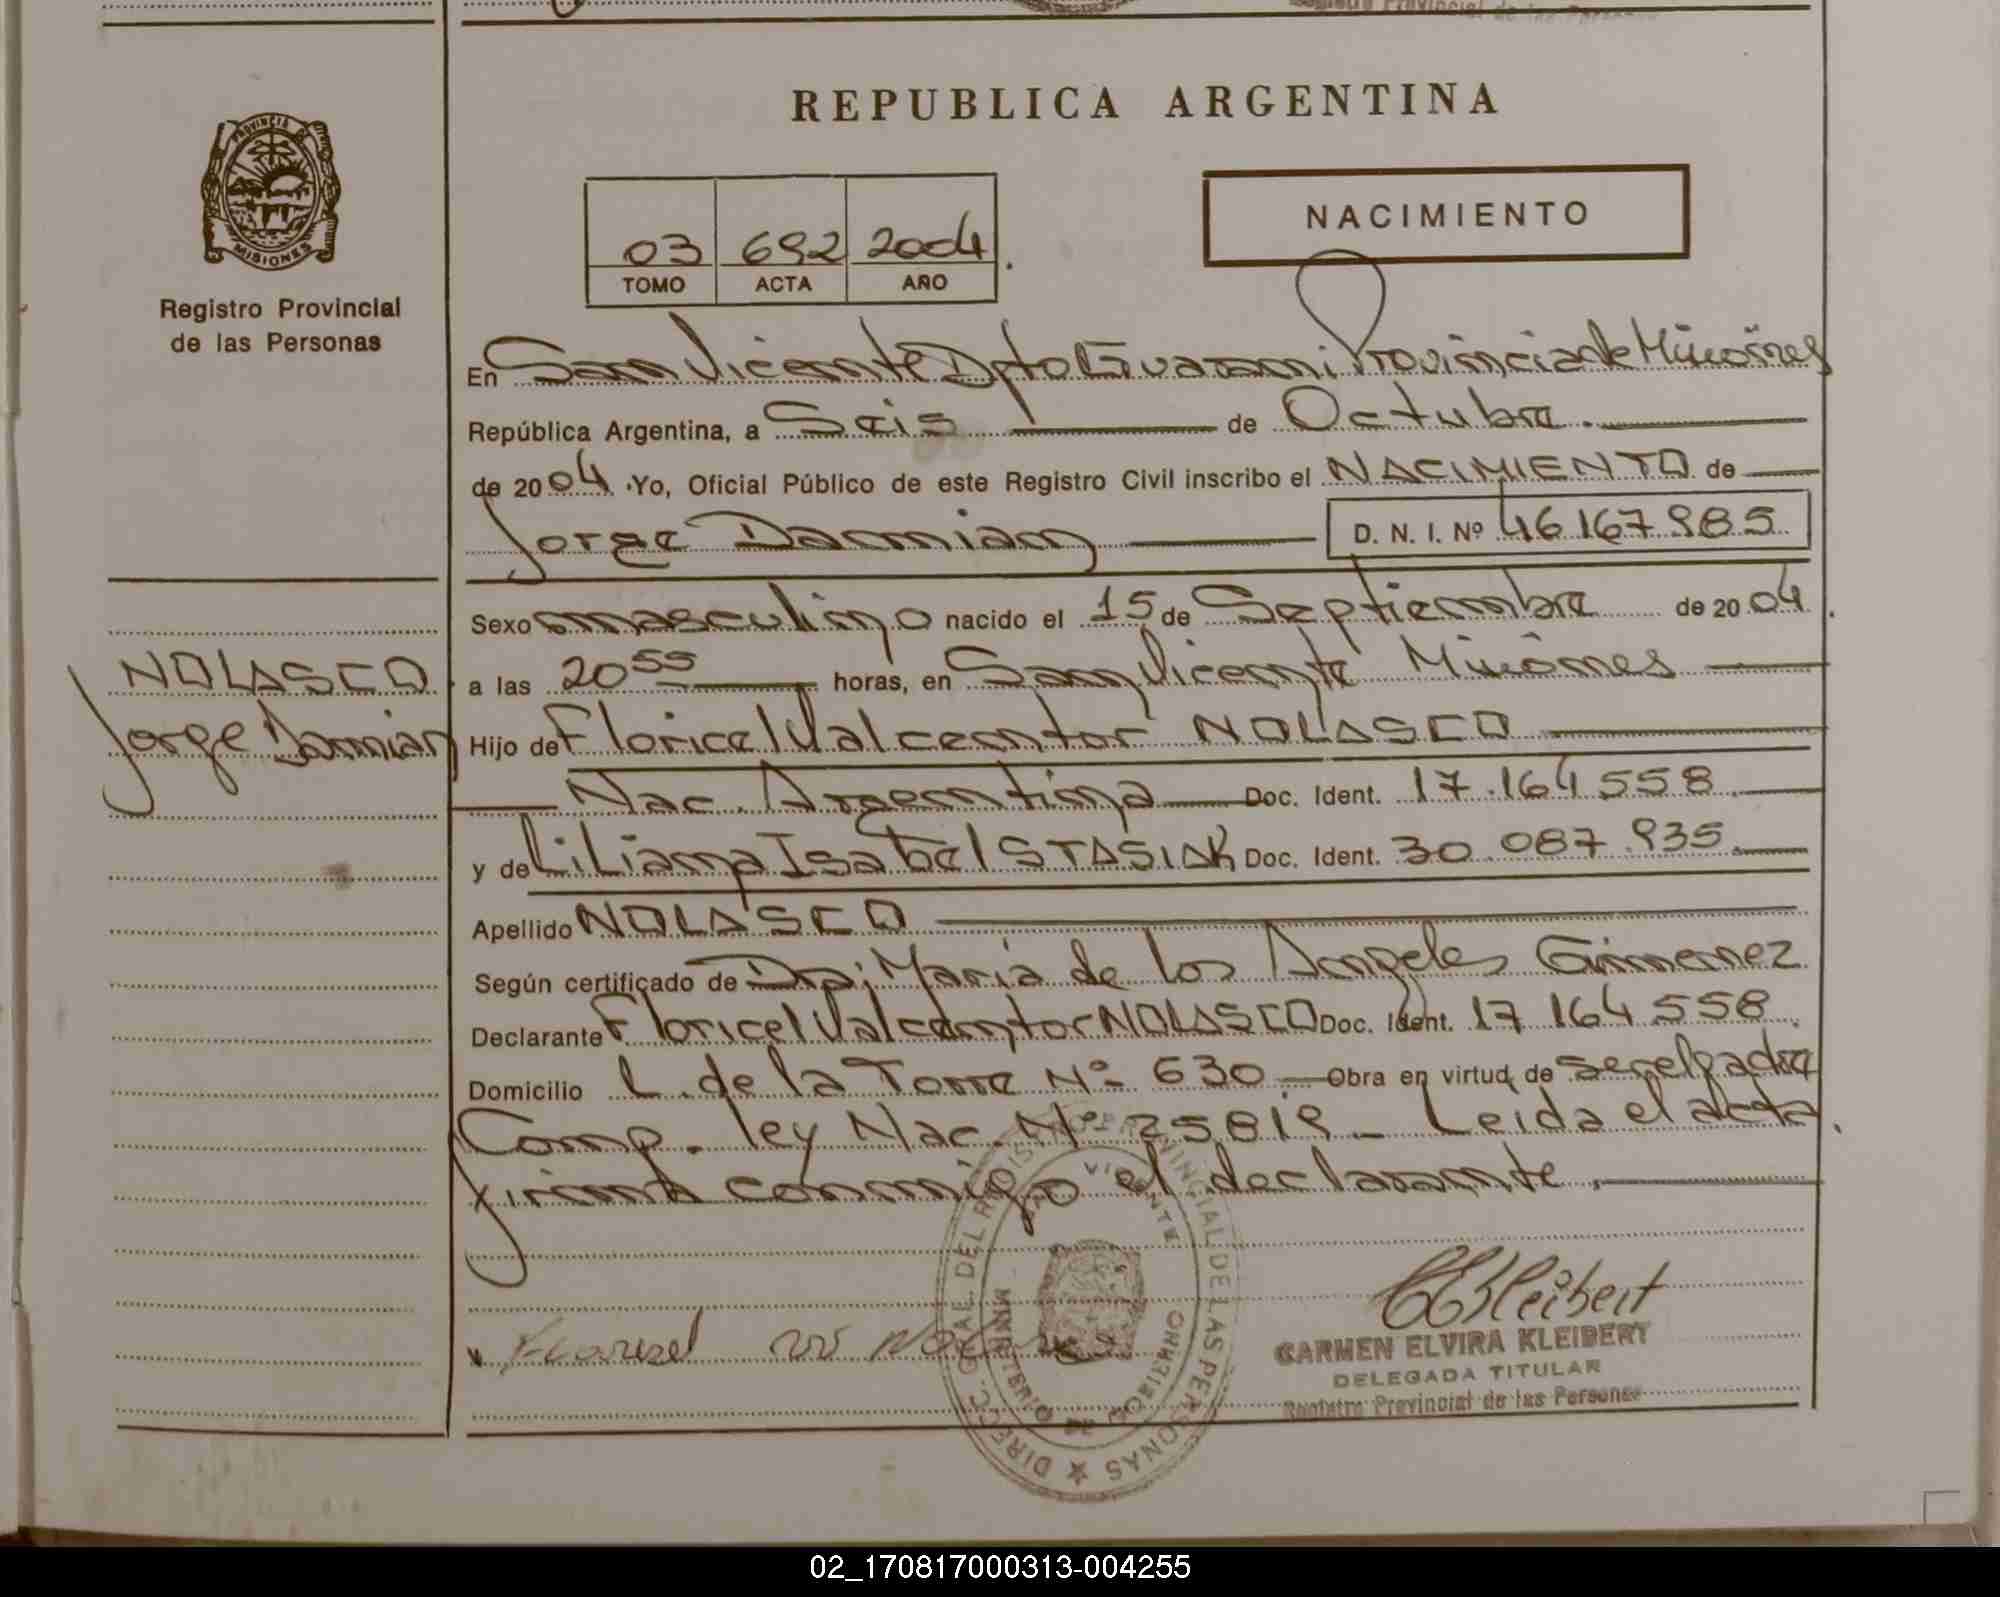 REPUBLICA ARGENTINA
PROVINCIA DE
MISIONES
Registro Provincial
de las Personas
03 692 2004
TOMO ACTA AÑO
NACIMIENTO
En San Vicente Dpto Guarani Provincia de Misiones
República Argentina, a Seis de Octubre.
de 2004. Yo, Oficial Público de este Registro Civil inscribo el NACIMIENTO de
Jorge Damian D. N. I. Nº 46.167.985
Sexo masculino nacido el 15 de Septiembre de 2004.
a las 20 55 horas, en San Vicente Misiones
NOLASCO
Jorge Damian
Hijo de Floricel Valcentor NOLASCO
Nac. Argentina Doc. Ident. 17.164.558
y de Liliana Isabel STASIAK Doc. Ident. 30.087.935.
Apellido NOLASCO
Según certificado de Dra: Maria de los Angeles Gimenez
Declarante Floricel Valcentor NOLASCO Doc. Ident. 17 164 558
Domicilio L. de la Torre Nº 630 Obra en virtud de
Comp. ley Nac. Nº 25819 - Leida el acta.
firma conmigo el declarante.
DIRECC. GRAL. DEL REGISTRO PROVINCIAL DE LAS PERSONAS
SAN VICENTE
MINISTERIO DE GOBIERNO
CEKleibert
CARMEN ELVIRA KLEIBERT
DELEGADA TITULAR
Registro Provincial de las Personas
02_170817000313-004255